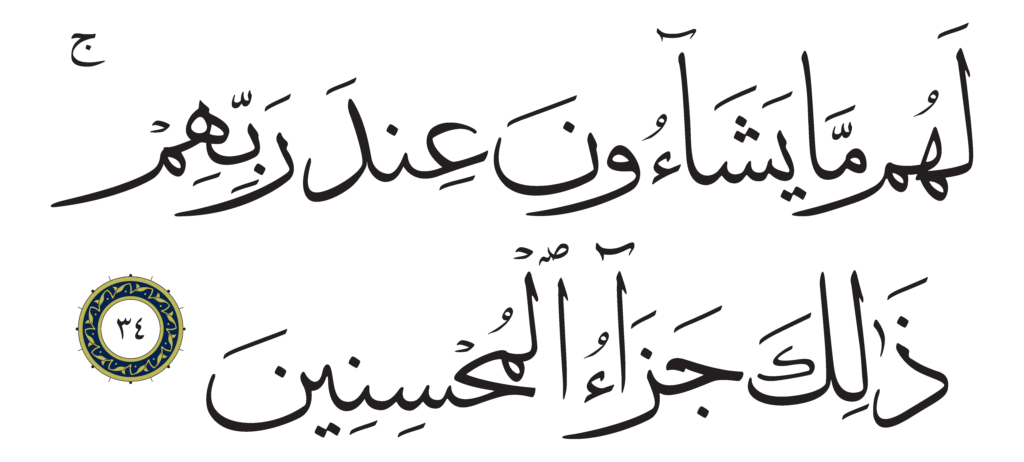 لَهُم مَّا يَشَآءُونَ عِندَ رَبِّهِمْ ۚ
ذَٰلِكَ جَزَآءُ ٱلْمُحْسِنِينَ ٣٤